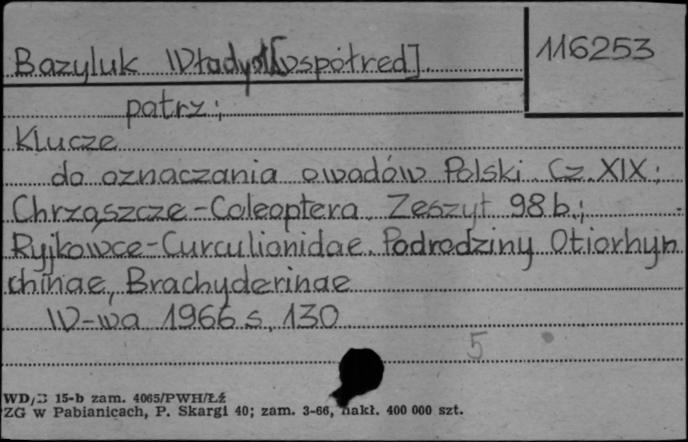 Bazyluk Władysł[współred].
116253
patrz:
Klucze
do oznaczania owadów Polski Cz. XIX:
Chrząszcze-Coleoptera. Zeszyt 98b.:
Ryjkowce-Curculionidae. Podrodziny Otiorhyn
chinae, Brachyderinae
W-wa 1966 s. 130
5
WD/B 15-b zam. 4065/PWH/Łź
ZG w Pabianicach, P. Skargi 40; zam. 3-66, nakł. 400 000 szt.